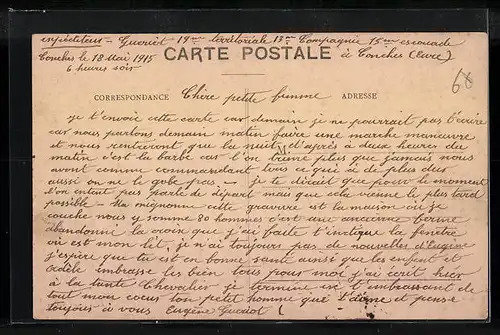 expéditeur - Gueriot 19me territoriale 13me Compagnie 15me escouade
Conches le 18 Mai 1915 CARTE POSTALE à Conches (Eure)
6 heures soir
68
CORRESPONDANCE Chère petite femme ADRESSE
je t'envoie cette carte car demain je ne pourrait pas t'écrire
car nous partons demain matin faire une marche manœuvre
et nous rentreront que la nuit d'après à deux heures du
matin c'est la barbe car l'on trime plus que jamais nous
avont comme commandant tous ce qui à de plus des
aussi on ne le gobe pas - je te dirait que pour le moment
l'on entent pas parlé de départ mais que cela vienne le plus tard
possible - Ma mignonne cette gravure est la maison où je
couche nous y somme 80 hommes c'est une ancienne ferme
abandonni la croix que j'ai faite t'indique la fenêtre
où est mon lit, je n'ai toujours pas de nouvelles d'Eugène
j'espère que tu est en bonne santé ainsi que les enfent et
Adèle embrasse les bien tous pour moi j'ai écrit hier
à la tante Chevalier je termine est t'embrassant de
tout mon cœur ton petit homme qui t'aime et pense
toujours à vous Eugène Gueriot